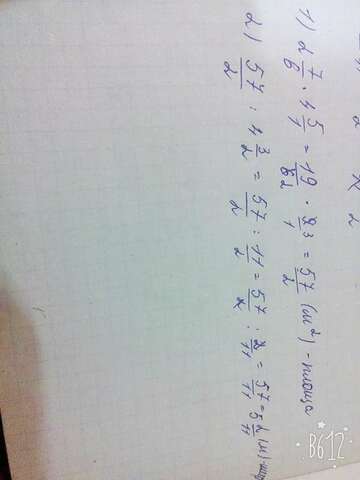 1) 2 7/6 · 4 5/1 = 19/6 2 · 9 3/1 = 57/2 (м²) - площа
2) 57/2 : 4 3/2 = 57/2 : 11/2 = 57/2 : 2/11 = 57/11 = 5 2/11 (м)
B612